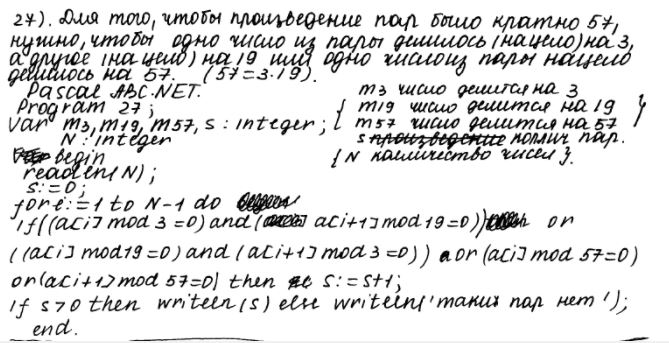 27). Для того, чтобы произведение пар было кратно 57,
нужно, чтобы одно число из пары делилось (нацело) на 3,
а другое (нацело) на 19 или одно число из пары нацело
делилось на 57. (57=3·19).
Pascal ABC.NET. m3 число делится на 3
Program 27; { m19 число делится на 19 }
Var m3, m19, m57, s : integer; { m57 число делится на 57
N : integer s произведение колич пар.
begin {N калличество чисел}.
readln(N);
s:=0;
for i:=1 to N-1 do
if((a[i] mod 3=0) and (a[i+1] mod 19=0)) or
((a[i] mod 19=0) and (a[i+1] mod 3=0)) or (a[i] mod 57=0)
or(a[i+1] mod 57=0) then s:=s+1;
if s>0 then writeln(s) else writeln('таких пар нет');
end.